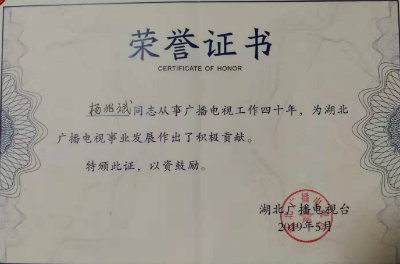 荣誉证书
CERTIFICATE OF HONOR
杨兆斌同志从事广播电视工作四十年，为湖北
广播电视事业发展作出了积极贡献。
特颁此证，以资鼓励。
湖北广播电视台
2019年5月